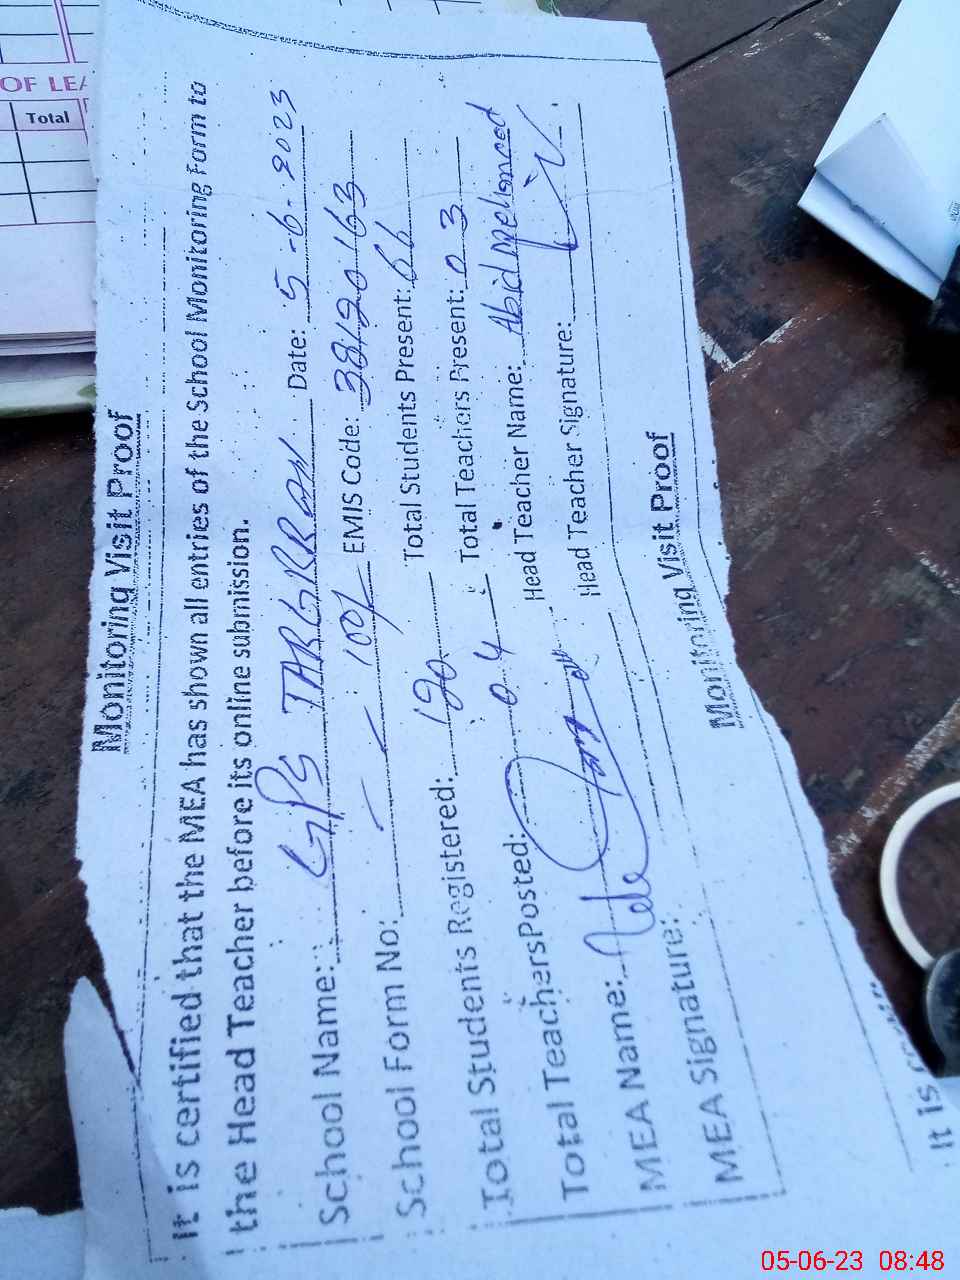 OF LEA
Total
Monitoring Visit Proof
It is certified that the MEA has shown all entries of the School Monitoring Form to
the Head Teacher before its online submission.
School Name: GPS TARGRRAN Date: 5-6-2023
School Form No: EMIS Code: 38120163
Total Students Registered: 120 Total Students Present: 66
Total Teachers Posted: 04 Total Teachers Present: 03
MEA Name: Head Teacher Name: Abid Mehmood
MEA Signature: Head Teacher Signature:
Monitoring Visit Proof
It is
05-06-23 08:48